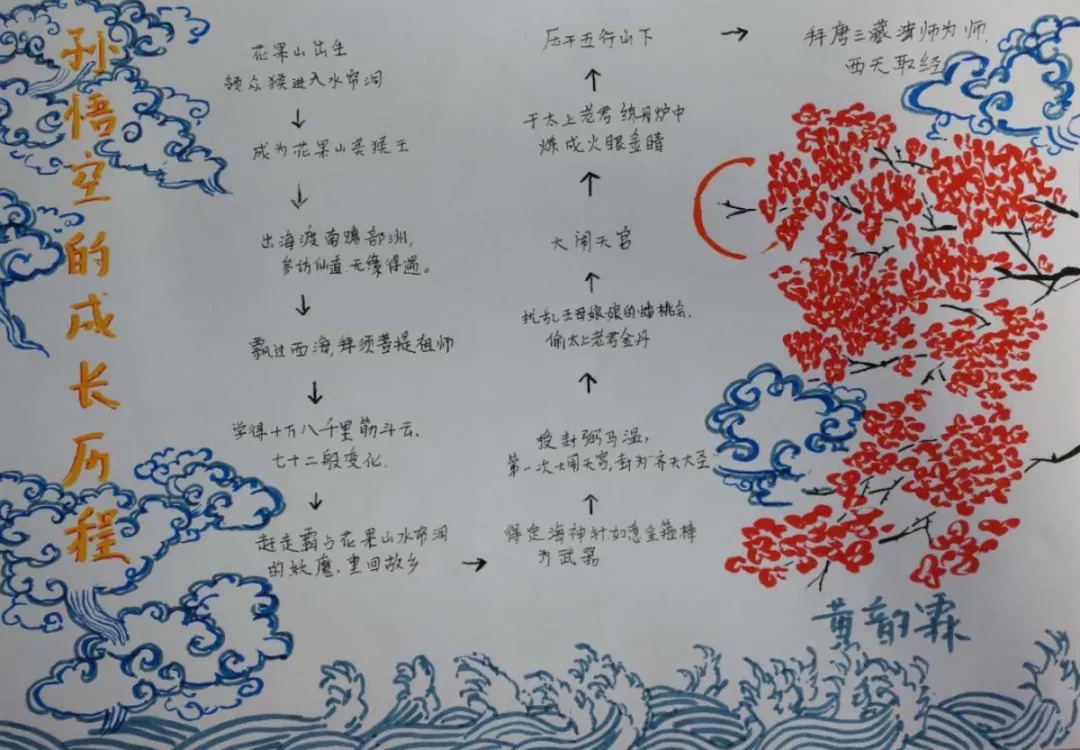 孙悟空的成长历程
花果山出生
领众猴进入水帘洞
成为花果山美猴王
出海渡南赡部洲,
参访仙道.无缘得遇。
飘过西海,拜须菩提祖师
学得十万八千里筋斗云、
七十二般变化.
赶走霸占花果山水帘洞
的妖魔.重回故乡
得定海神针如意金箍棒
为武器
授封弼马温,
第一次大闹天宫,封为"齐天大圣
扰乱王母娘娘的蟠桃会.
偷太上老君金丹
大闹天宫
于太上老君练丹炉中
炼成火眼金睛
压于五行山下
拜唐三藏法师为师.
西天取经
黄韵霖